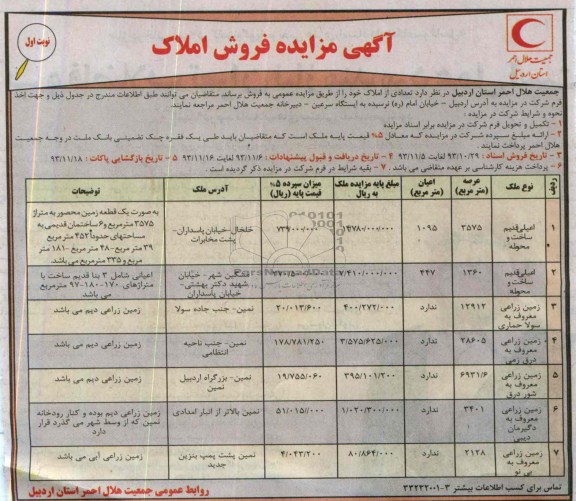 نوبت اول
آگهی مزایده فروش املاک
جمعیت هلال احمر
استان اردبیل
جمعیت هلال احمر استان اردبیل در نظر دارد تعدادی از املاک خود را از طریق مزایده عمومی به فروش برساند. متقاضیان می توانند طبق اطلاعات مندرج در جدول ذیل و جهت اخذ
فرم شرکت در مزایده به آدرس اردبیل – خیابان امام (ره) نرسیده به ایستگاه سرعین – دبیرخانه جمعیت هلال احمر مراجعه نمایند.
نحوه و شرایط شرکت در مزایده :
۱ – تکمیل و تحویل فرم شرکت در مزایده برابر اسناد مزایده
۲ – ارائه مبلغ سپرده شرکت در مزایده که معادل ۵% قیمت پایه ملک است که متقاضیان باید طی یک فقره چک تضمینی بانک ملت در وجه جمعیت
هلال احمر پرداخت نمایند.
۳ – تاریخ فروش اسناد : ۹۳/۱۰/۲۹ لغایت ۹۳/۱۱/۵ ۴ – تاریخ دریافت و قبول پیشنهادات : ۹۳/۱۱/۶ لغایت ۹۳/۱۱/۱۶ ۵ – تاریخ بازگشایی پاکات : ۹۳/۱۱/۱۸
۶ – پرداخت هزینه کارشناسی بر عهده متقاضی می باشد. ۷ – بقیه شرایط در فرم شرکت در مزایده ذکر گردیده است
ردیف نوع ملک عرصه (متر مربع) اعیان (متر مربع) مبلغ پایه مزایده ملک به ریال میزان سپرده ۵% قیمت پایه (ریال) آدرس ملک توضیحات
۱ اعیانی قدیم ساخت و محوطه ۳۵۷۵ ۱۰۹۵ ۷۳۹/۰۰۰/۰۰۰ خلخال-خیابان پاسداران- پشت مخابرات به صورت یک قطعه زمین محصور به متراژ ۳۵۷۵ مترمربع و ۶ ساختمان قدیمی به مساحتهای حدوداً ۴۵۲ متر مربع ۳۹ متر مربع-۴۸ متر مربع -۱۸۱ متر مربع و ۳۳۵ مترمربع می باشد
۲ اعیانی قدیم ساخت و محوطه ۱۳۶۰ ۴۴۷ ۷/۴۱۰/۰۰۰/۰۰۰ شهر- خیابان شهید دکتر بهشتی- خیابان پاسداران اعیانی شامل ۳ بنا قدیم ساخت با متراژهای ۱۷۰-۱۸۰-۹۷ مترمربع می باشد
۳ زمین زراعی معروف به سولا حماری ۱۲۹۱۲ ندارد ۴۰۰/۲۷۲/۰۰۰ ۲۰/۰۱۳/۶۰۰ نمین- جنب جاده سولا زمین زراعی دیم می باشد
۴ زمین زراعی معروف به درق زمی ۲۸۶۰۵ ندارد ۳/۵۷۵/۶۲۵/۰۰۰ ۱۷۸/۷۸۱/۲۵۰ نمین- جنب ناحیه انتظامی زمین زراعی دیم می باشد
۵ زمین زراعی معروف به شور درق ۶۹۳۱/۶ ندارد ۳۹۵/۱۰۱/۲۰۰ ۱۹/۷۵۵/۰۶۰ نمین- بزرگراه اردبیل نمین زمین زراعی دیم می باشد
۶ زمین زراعی معروف به دگیرمان دیبی ۳۴۰۱ ندارد ۱/۰۲۰/۳۰۰/۰۰۰ ۵۱/۰۱۵/۰۰۰ نمین بالاتر از انبار امدادی زمین زراعی دیم بوده و کنار رودخانه نمین که از وسط شهر می گذرد قرار دارد
۷ زمین زراعی معروف به بی نو ۲۱۲۸ ندارد ۸۰/۸۶۴/۰۰۰ ۴/۰۴۳/۲۰۰ نمین پشت پمپ بنزین جدید زمین زراعی آبی می باشد
تماس برای کسب اطلاعات بیشتر ۳-۳۳۲۳۲۰۰۱
روابط عمومی جمعیت هلال احمر استان اردبیل